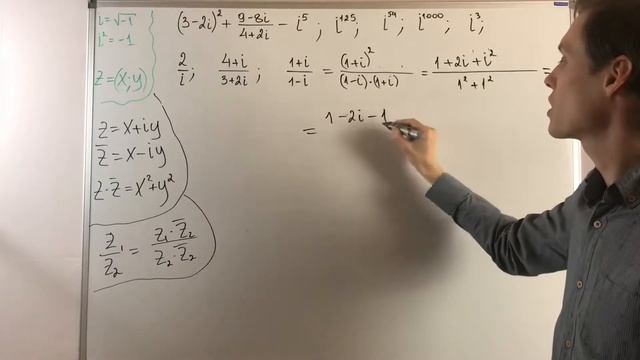 i = √-1
i² = -1
z = (x; y)
z = x + iy
z̅ = x - iy
z · z̅ = x² + y²
z₁/z₂ = z₁·z̅₂/z₂·z̅₂
(3-2i)² + 9-8i/4+2i - i⁵ ; i¹²⁵ ; i⁵⁴ ; i¹⁰⁰⁰ ; i³ ;
2/i ; 4+i/3+2i ; 1+i/1-i = (1+i)²/(1-i)·(1+i) = 1+2i+i²/1²+1² =
= 1-2i-1